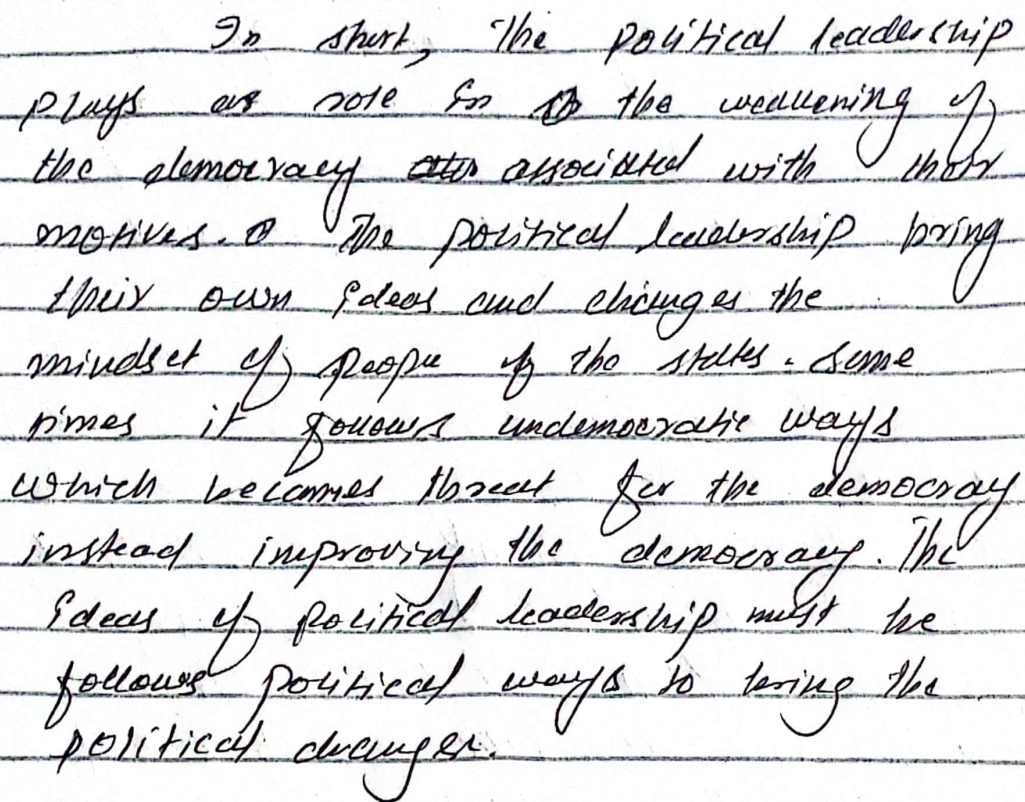 In short, The political leadership
plays as role in the weakening of
the democracy associated with their
motives. The political leadership bring
their own ideas and changes the
mindset of people of the states. Some
times it follows undemocratic ways
which becomes threat for the democracy
instead improving the democracy. The
ideas of political leadership must be
follows political ways to bring the
political changes.